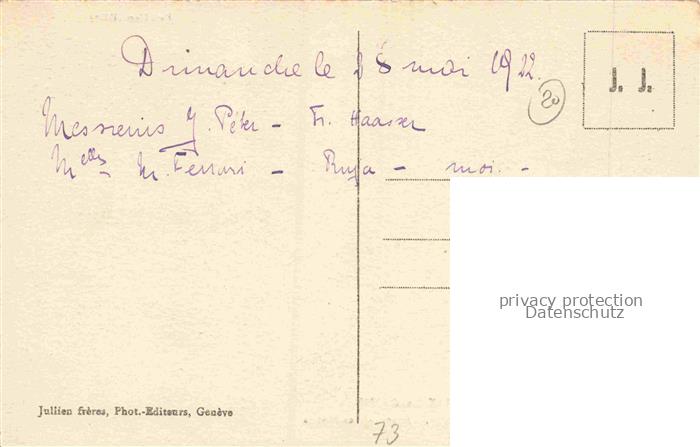 Dimanche le 28 mai 1922.
20
J. J.
Messieurs J. Péter – Fr. Haasser
Melles M. Ferrari – Ruja – moi –
privacy protection
Datenschutz
Jullien frères, Phot.-Editeurs, Genève
73